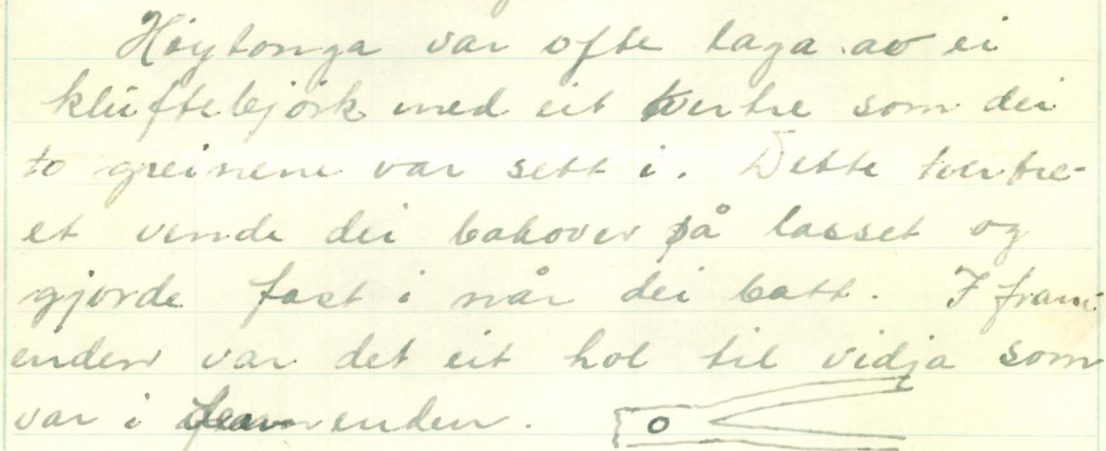 Høytonga var ofte laga av ei
kluftebjørk med eit tvertre som dei
to greinene var sett i. Dette tvertre-
et vende dei bakover på lasset og
gjorde fast i når dei batt. I fram-
enden var det eit hol til vidja som
var i framenden.